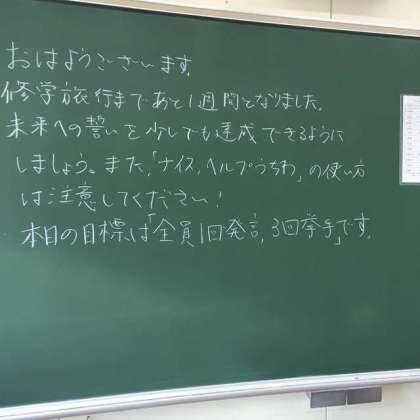 おはようございます。
修学旅行まであと1週間となりました。
未来への誓いを少しでも達成できるように
しましょう。また、「ナイス、ヘルプうちわ」の使い方
は注意してください!
本日の目標は「全員1回発言、3回挙手」です。